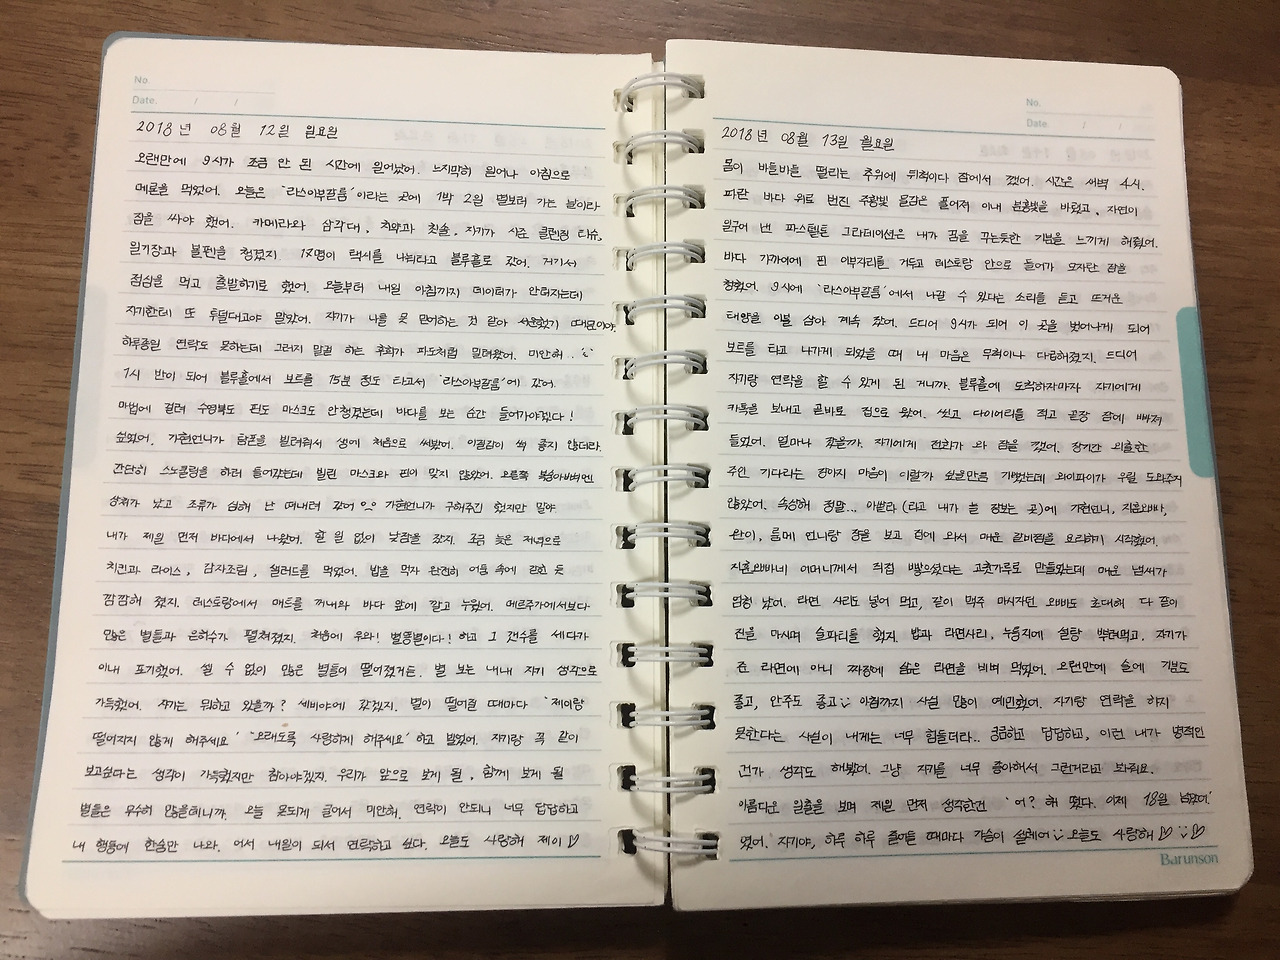 No.
Date. / /
2018년 08월 12일 월요일
오랜만에 9시가 조금 안 된 시간에 일어났어. 느지막히 일어나 아침으로
메론을 먹었어. 오늘은 '라스아부갈룸'이라는 곳에 1박 2일 별보러 가는 날이라
짐을 싸야 했어. 카메라와 삼각대, 치약과 칫솔, 자기가 사준 클렌징 티슈,
일기장과 볼펜을 챙겼지. 17명이 택시를 나눠타고 블루홀로 갔어. 거기서
점심을 먹고 출발하기로 했어. 오늘부터 내일 아침까지 데이터가 안터지는데
자기한테 또 투덜대고야 말았어. 자기가 나를 못 믿어하는 것 같아 서운했기 때문이야.
하루종일 연락도 못하는데 그러지 말걸 하는 후회가 파도처럼 밀려왔어. 미안해.
1시 반이 되어 블루홀에서 보트를 15분 정도 타고서 '라스아부갈룸'에 갔어.
마법에 걸려 수영복도 핀도 마스크도 안챙겼는데 바다를 보는 순간 들어가야겠다!
싶었어. 가현언니가 탐폰을 빌려줘서 생에 처음으로 써봤어. 이질감이 썩 좋지 않더라.
간단히 스노클링을 하러 들어갔는데 빌린 마스크와 핀이 맞지 않았어. 오른쪽 복숭아뼈엔
상처가 났고 조류가 심해 난 떠내려 갔어 ㅇ_ㅇ 가현언니가 구해주긴 했지만 말야
내가 제일 먼저 바다에서 나왔어. 할 일 없이 낮잠을 잤지. 조금 늦은 저녁으로
치킨과 라이스, 감자조림, 샐러드를 먹었어. 밥을 먹자 완전히 어둠 속에 갇힌 듯
깜깜해 졌지. 레스토랑에서 매트를 꺼내와 바다 앞에 깔고 누웠어. 메르주가에서보다
많은 별들과 은하수가 펼쳐졌지. 처음에 우와! 별똥별이다! 하고 그 갯수를 세다가
이내 포기했어. 셀 수 없이 많은 별들이 떨어졌거든. 별 보는 내내 자기 생각으로
가득했어. 자기는 뭐하고 있을까? 세비야에 갔겠지. 별이 떨어질 때마다 '제이랑
떨어지지 않게 해주세요' '오래도록 사랑하게 해주세요' 하고 빌었어. 자기랑 꼭 같이
보고싶다는 생각이 가득했지만 참아야겠지. 우리가 앞으로 보게 될, 함께 보게 될
별들은 무수히 많을테니까. 오늘 못되게 굴어서 미안해. 연락이 안되니 너무 답답하고
내 행동에 한숨만 나와. 어서 내일이 되서 연락하고 싶다. 오늘도 사랑해 제이♡
No.
Date. / /
2018년 08월 13일 월요일
몸이 바들바들 떨리는 추위에 뒤척이다 잠에서 깼어. 시간은 새벽 4시.
파란 바다 위로 번진 주황빛 물감은 풀어져 이내 분홍빛을 바랬고, 자연이
일구어 낸 파스텔톤 그라데이션은 내가 꿈을 꾸는듯한 기분을 느끼게 해줬어.
바다 가까이에 핀 이부자리를 거두고 레스토랑 안으로 들어가 모자란 잠을
청했어. 9시에 '라스아부갈룸'에서 나갈 수 있다는 소리를 듣고 뜨거운
태양을 이불 삼아 계속 잤어. 드디어 9시가 되어 이 곳을 벗어나게 되어
보트를 타고 나가게 되었을 때 내 마음은 무척이나 다급해졌지. 드디어
자기랑 연락을 할 수 있게 된 거니까. 블루홀에 도착하자마자 자기에게
카톡을 보내고 곧바로 집으로 왔어. 씻고 다이어리를 적고 곧장 잠에 빠져
들었어. 얼마나 잤을까. 자기에게 전화가 와 잠을 깼어. 장기간 외출한
주인 기다리는 강아지 마음이 이럴까 싶을만큼 기뻤는데 와이파이가 우릴 도와주지
않았어. 속상해 정말... 아쌀라 (라고 내가 늘 장보는 곳)에 가현언니, 지훈오빠,
완이, 름메 언니랑 장을 보고 집에 와서 매운 갈비찜을 요리하기 시작했어.
지훈오빠네 어머니께서 직접 빻으셨다는 고춧가루로 만들었는데 매운 냄새가
엄청 났어. 라면 사리도 넣어 먹고, 같이 맥주 마시자던 오빠도 초대해 다 같이
진을 마시며 술파티를 했지. 밥과 라면사리, 누룽지에 설탕 뿌려먹고. 자기가
준 라면에 아니 짜장에 삶은 라면을 비벼 먹었어. 오랜만에 술에 기분도
좋고, 안주도 좋고 아침까지 사실 많이 예민했어. 자기랑 연락을 하지
못한다는 사실이 내게는 너무 힘들더라.. 궁금하고 답답하고, 이런 내가 병적인
건가 생각도 해봤어. 그냥 자기를 너무 좋아해서 그런거라고 봐줘요.
아름다운 일출을 보며 제일 먼저 생각한건 '어? 해 떴다. 이제 18일 남았어.'
였어. 자기야, 하루 하루 줄어들 때마다 가슴이 설레어 오늘도 사랑해♡♡
Barunson